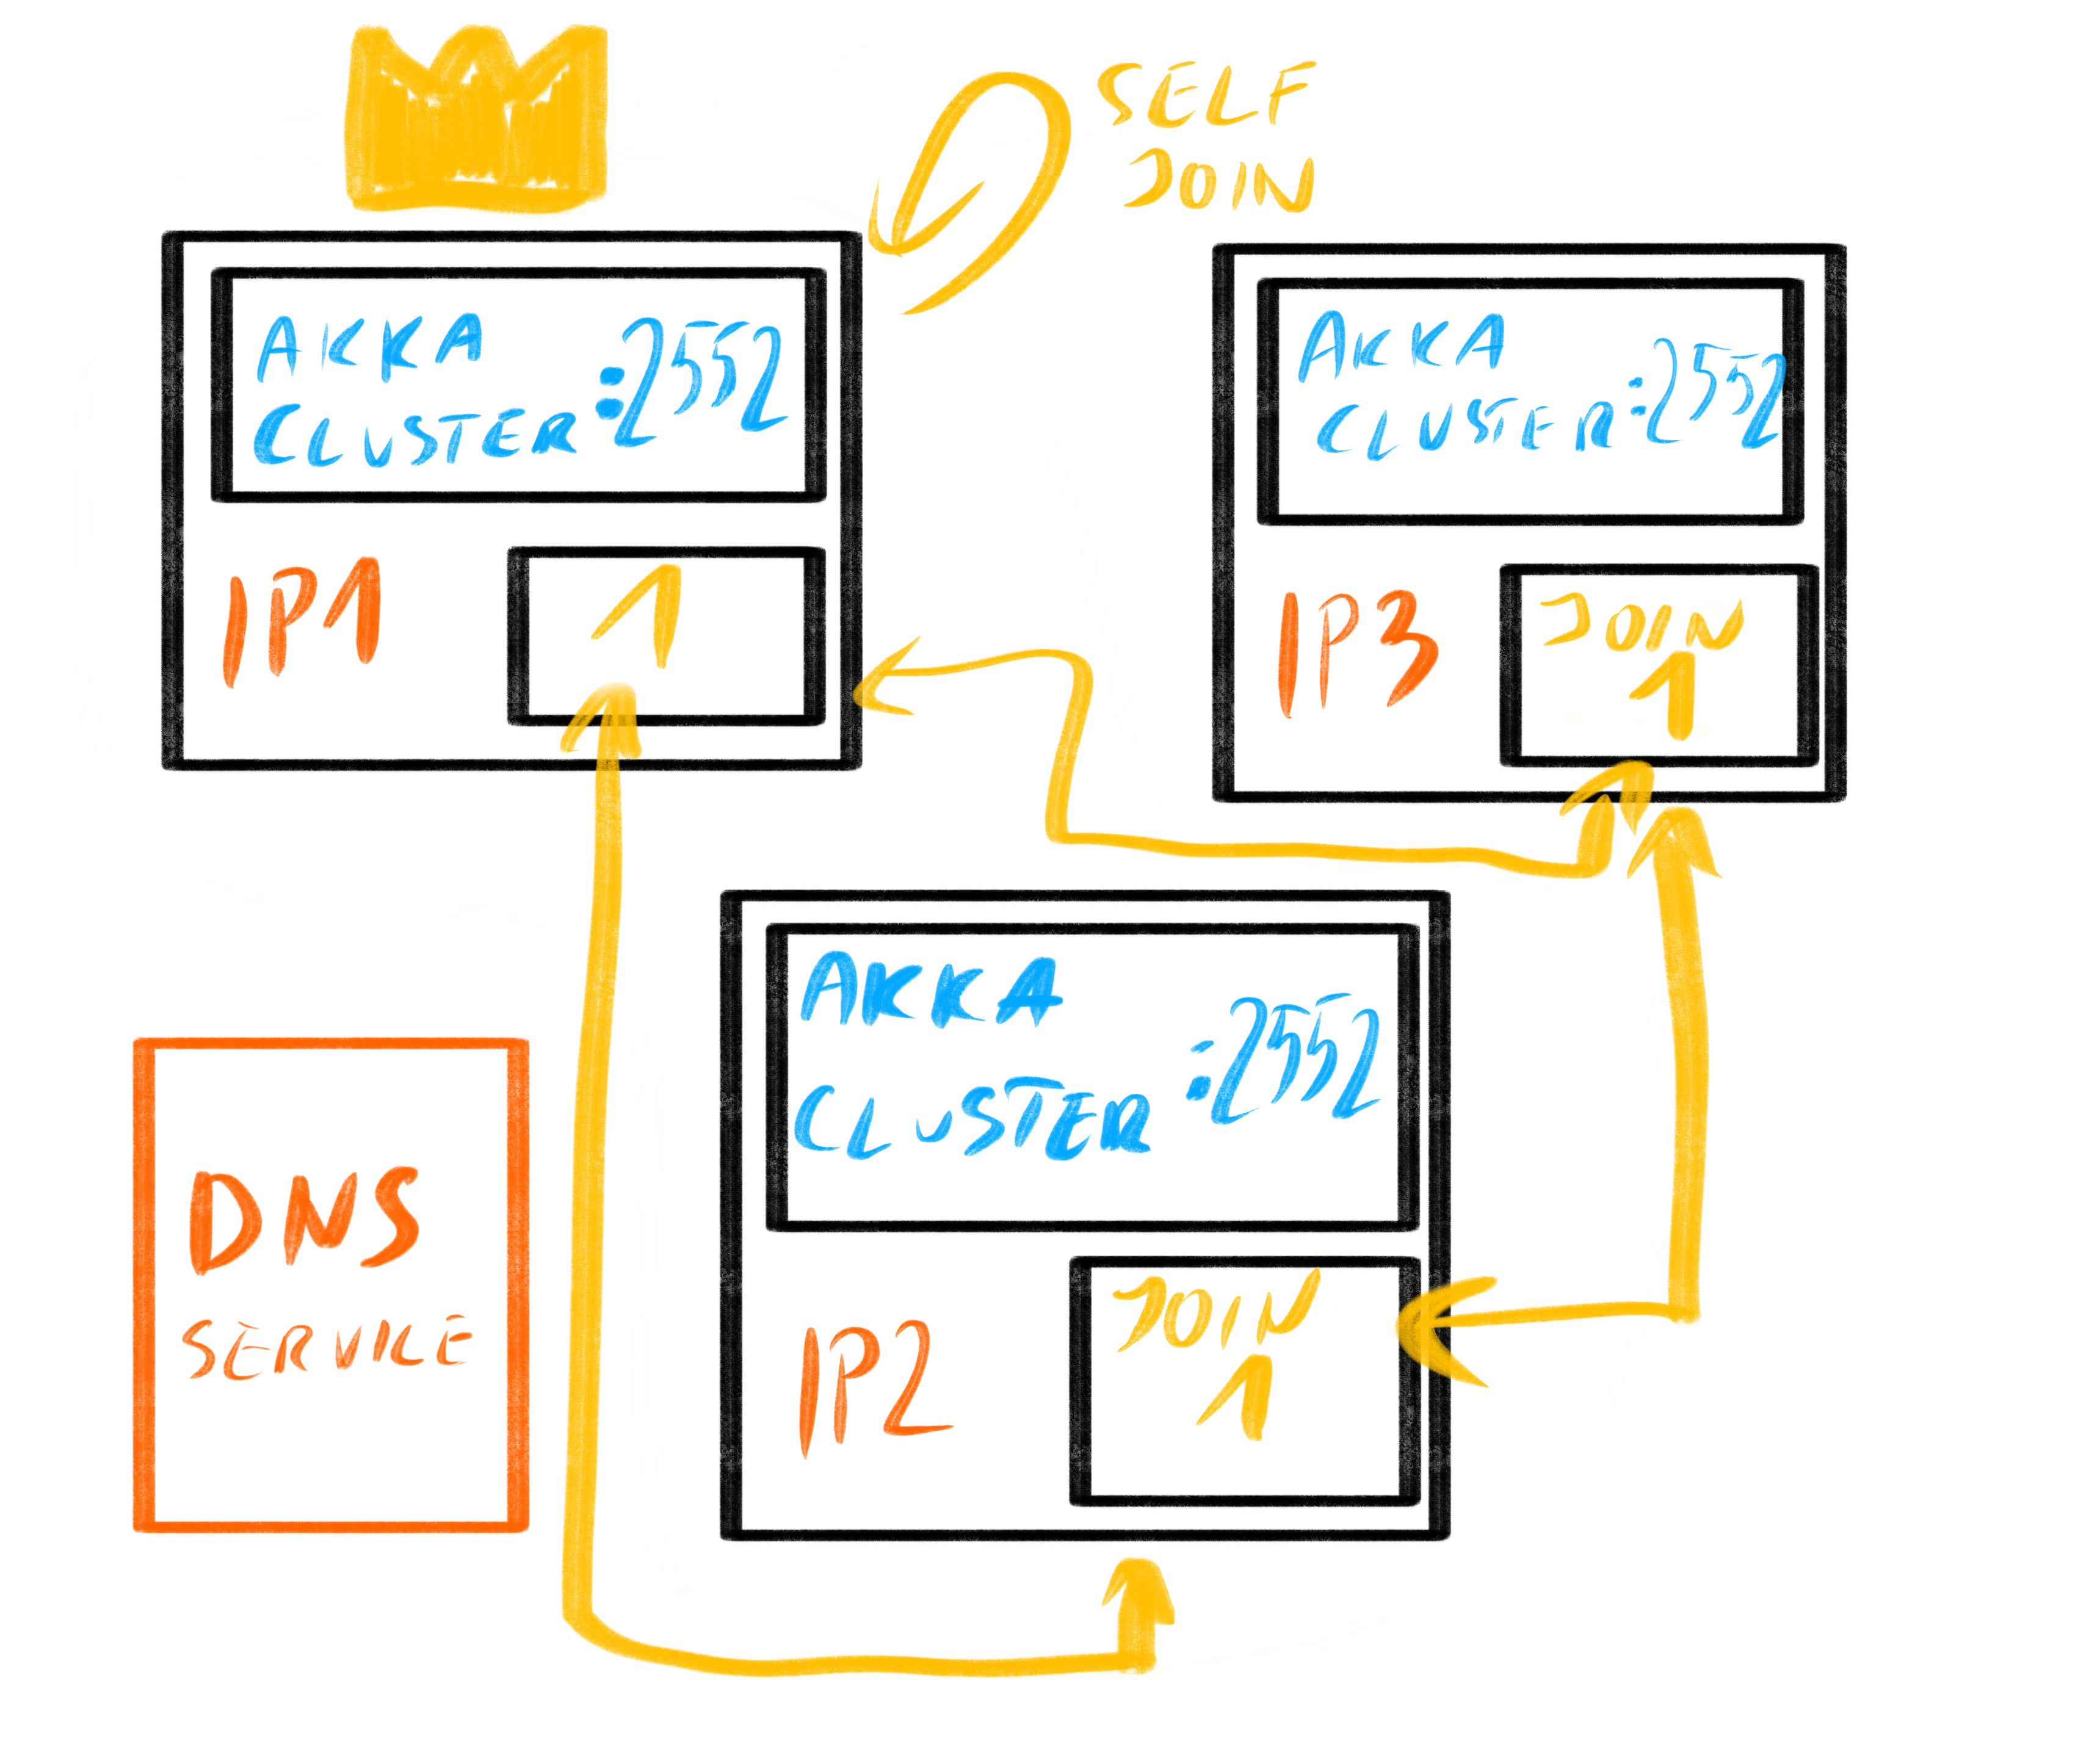 SELF
JOIN
AKKA
CLUSTER :2552
IP1
1
AKKA
CLUSTER :2552
IP3
JOIN
1
AKKA
CLUSTER :2552
IP2
JOIN
1
DNS
SERVICE